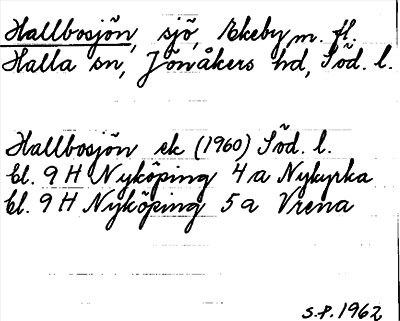 Hallbosjön, sjö, Ekeby m. fl.
Halla sn, Jönåkers hd, Söd. l.
Hallbosjön ek (1960) Söd. l.
bl. 9 H Nyköping 4 a Nykyrka
bl. 9 H Nyköping 5 a Vrena
S.P. 1962